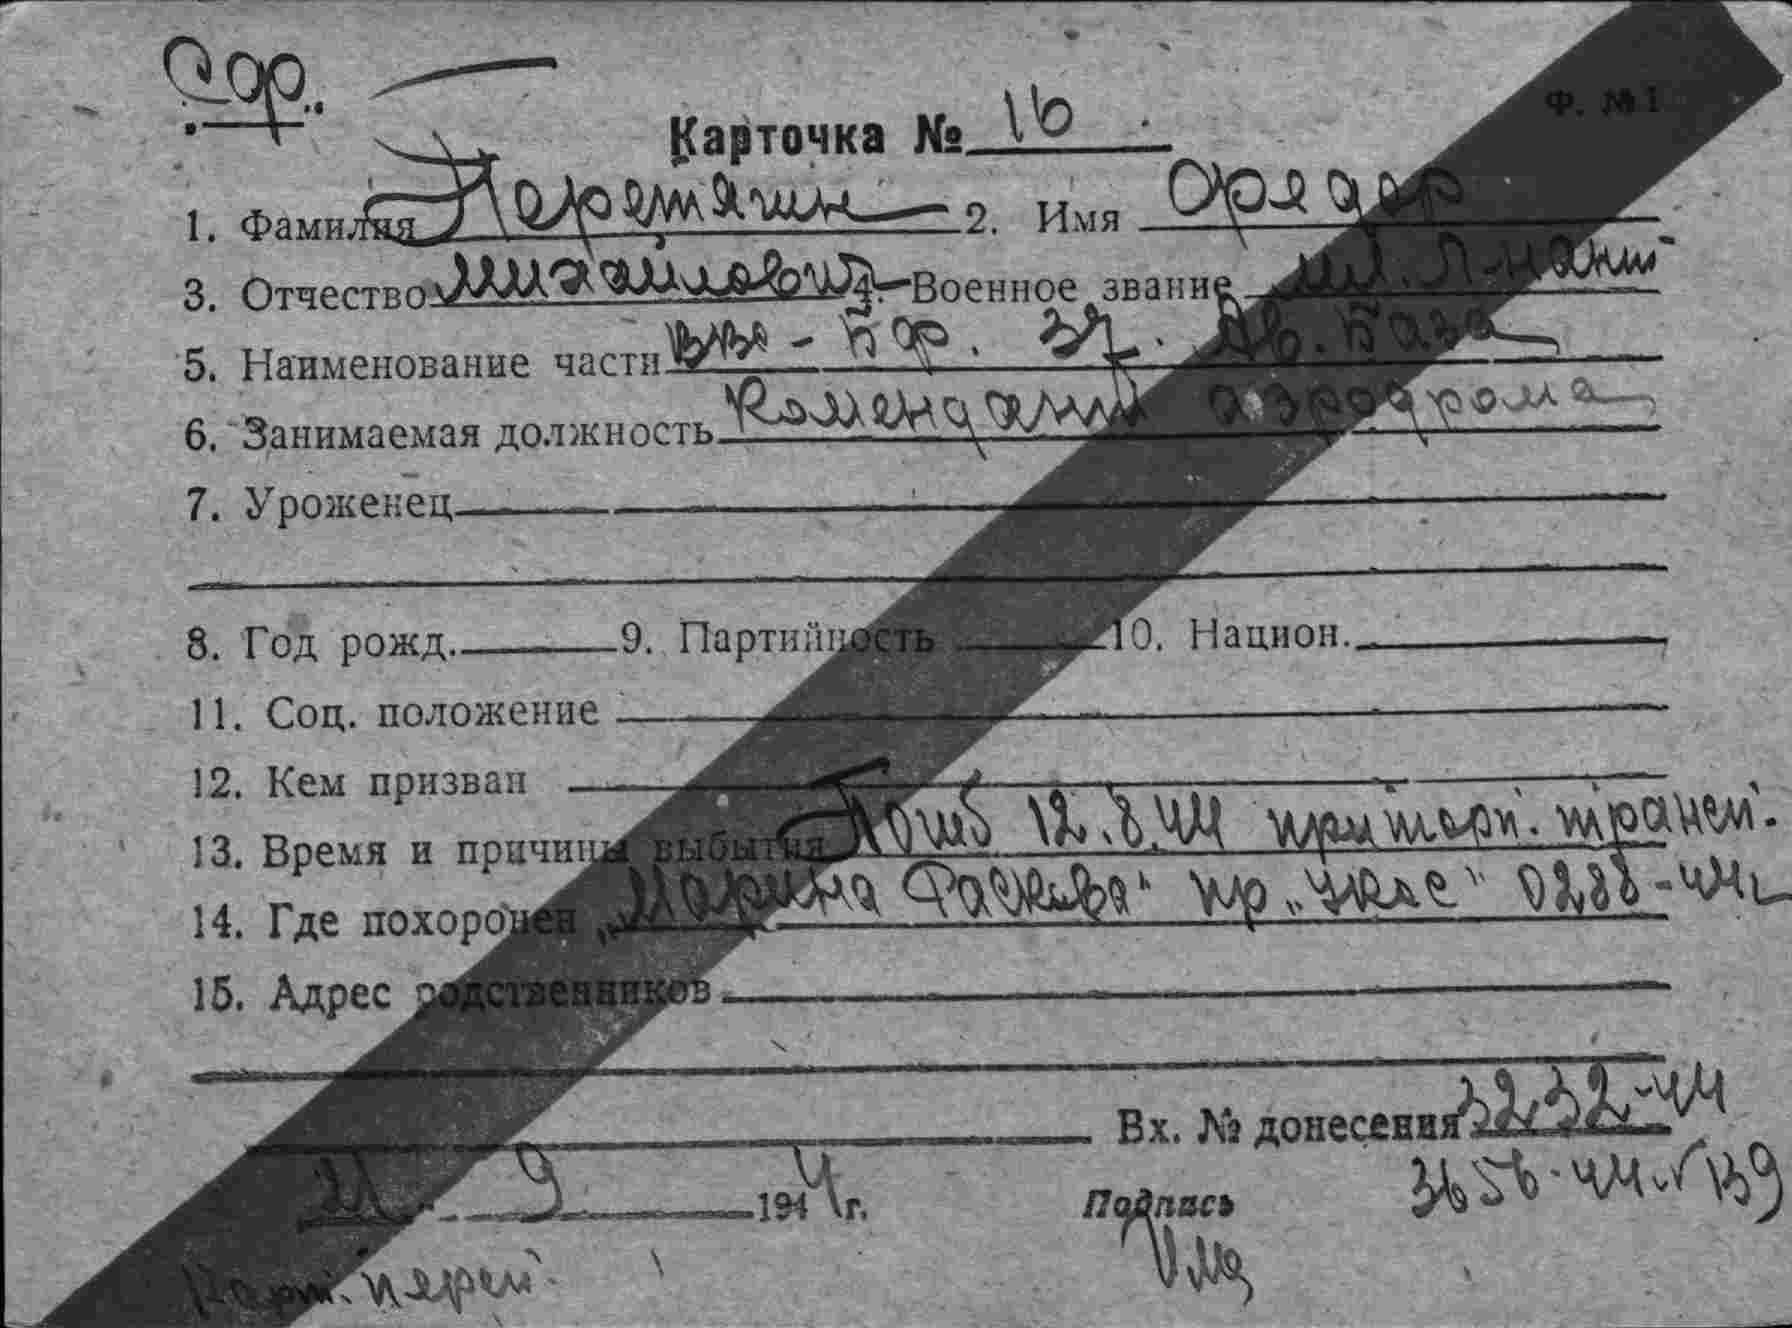 Сар.
Ф. №1
Карточка № 16
1. Фамилия Перетягин 2. Имя Фрядар
3. Отчество Михайлович 4. Военное звание мл. л-нант
5. Наименование части - Бар. Ав. База
6. Занимаемая должность Комендант аэродрома
7. Уроженец
8. Год рожд. 9. Партийность 10. Национ.
11. Соц. положение
12. Кем призван
13. Время и причины выбытия Погиб 12.8.44 при торп. трансп.
14. Где похоронен „Марина Раскова" пр „ 0288-44г
15. Адрес родственников
Вх. № донесения 3232-44
3656-44
9 1944г. Подпись
Карт. перей